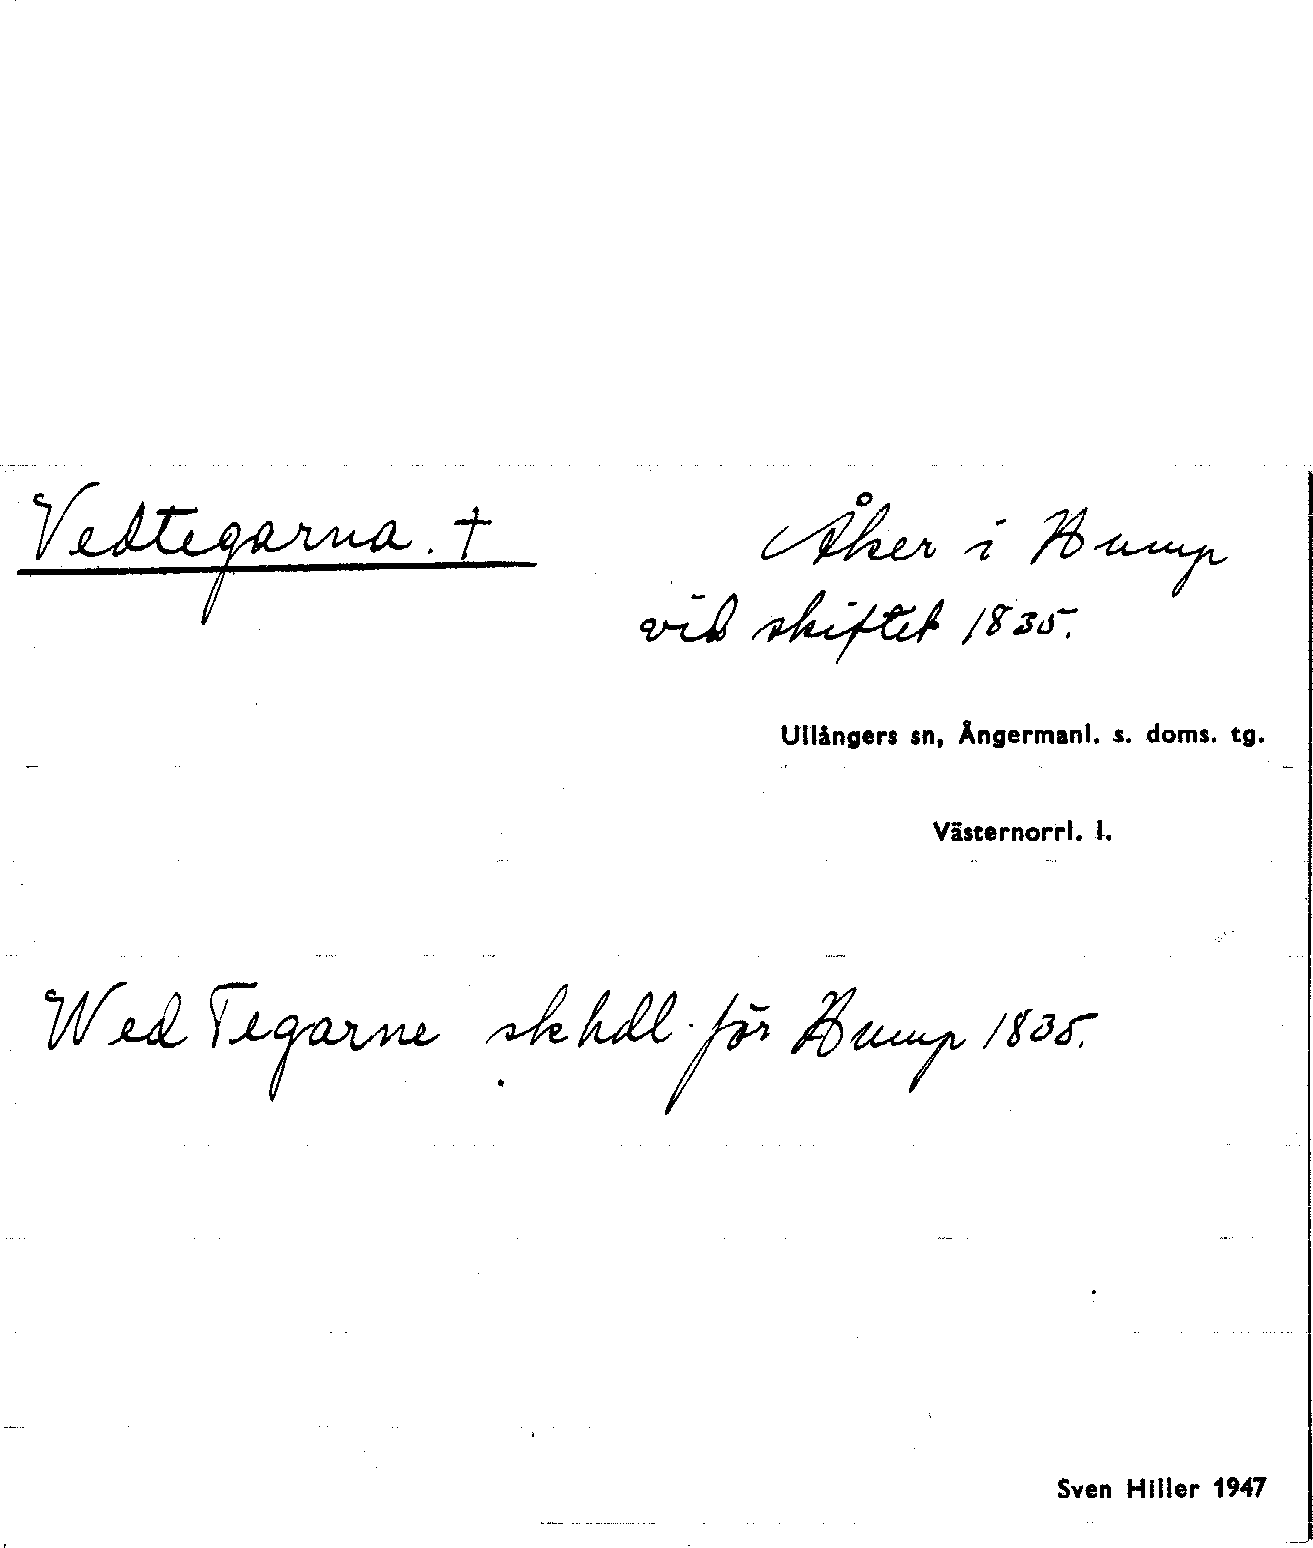 Vedtegarna. †
Åker i Hump
vid skiftet 1835.
Ullångers sn, Ångermanl. s. doms. tg.
Västernorrl. l.
Wed Tegarne skhdl. för Hump 1835.
Sven Hiller 1947